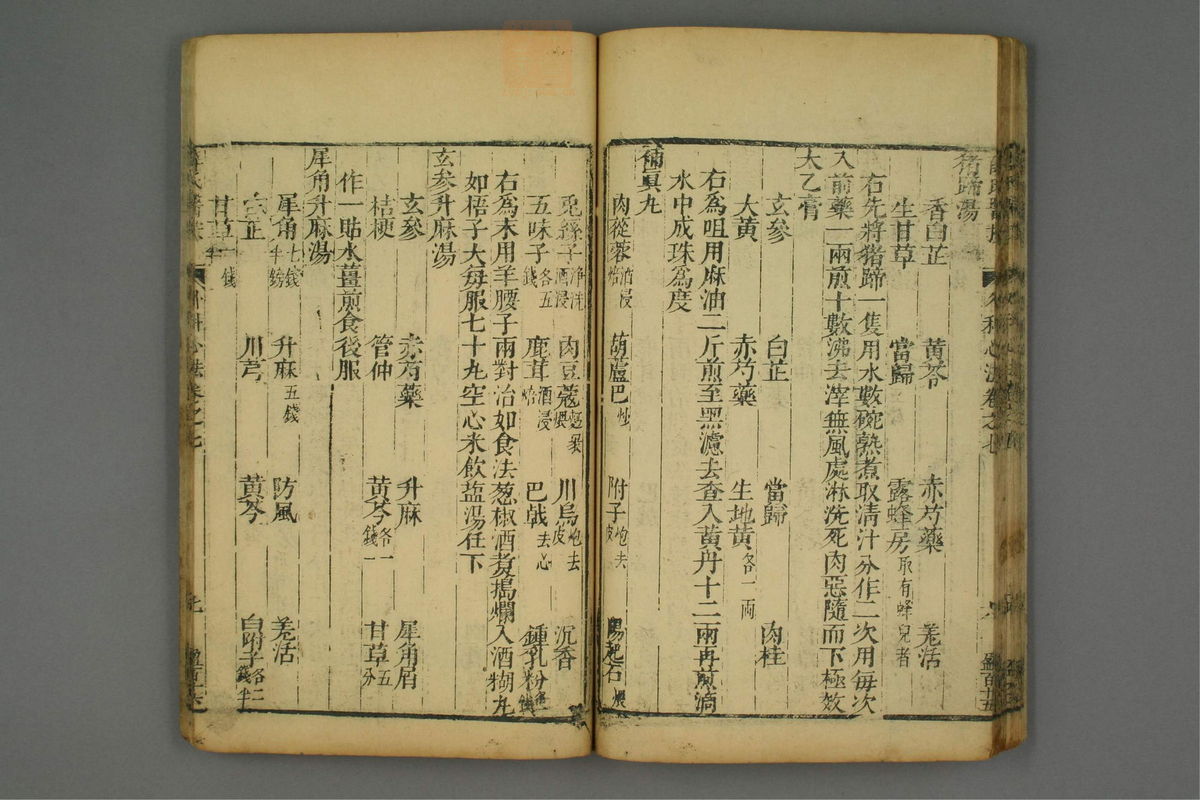 猪蹄湯
香白芷 黃芩 赤芍藥 羌活
生甘草 當歸 露蜂房取有蜂兒者
右先將猪蹄一隻用水數碗熟煮取清汁分作二次用每次
入前藥一兩煎十數沸去滓無風處淋洗死肉惡隨而下極效
太乙膏
玄參 白芷 當歸 肉桂
大黃 赤芍藥 生地黃各一兩
右為咀用麻油二斤煎至黑濾去查入黃丹十二兩再煎滴
水中成珠為度
補眞丸
肉蓯蓉酒浸焙 胡蘆巴炒 附子炮去皮 陽起石煆
兎絲子淨洗酒浸 肉豆蔻麪裹煨 川烏炮去皮 沉香
五味子各五錢 鹿茸酒浸焙 巴戟去心 鍾乳粉各二錢
右為末用羊腰子兩對治如食法葱椒酒煮搗爛入酒糊丸
如梧子大每服七十丸空心米飲塩湯任下
玄參升麻湯
玄參 赤芍藥 升麻 犀角屑
桔梗 管仲 黃芩各一錢 甘草五分
作一貼水薑煎食後服
犀角升麻湯
犀角七錢半鎊 升麻五錢 防風 羌活
白芷 川芎 黃芩 白附子各二錢半
甘草一錢半
外科心法卷之七